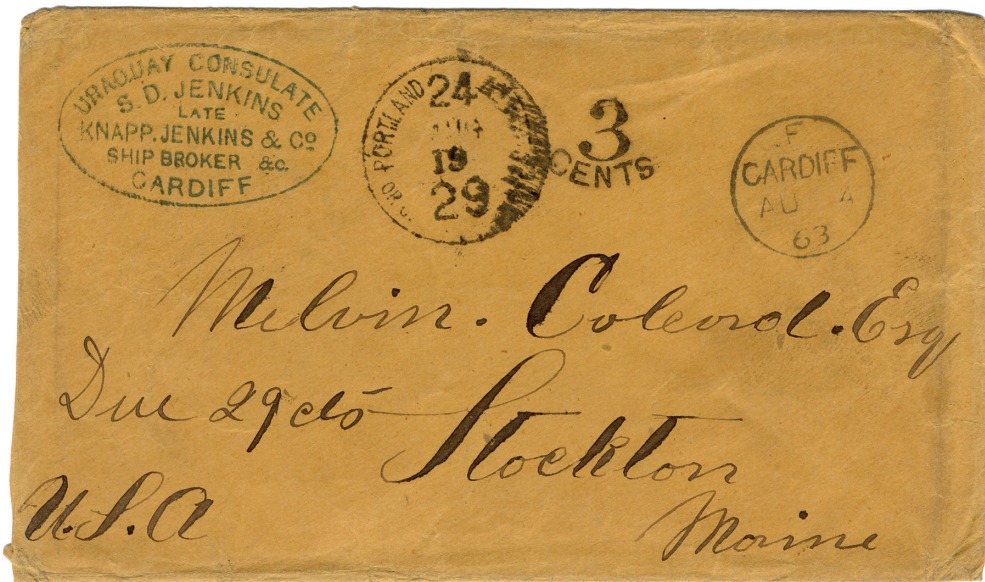 URAQUAY CONSULATE
S. D. JENKINS
LATE
KNAPP. JENKINS & Co
SHIP BROKER &c.
CARDIFF
PORTLAND
24
19
29
3
CENTS
F
CARDIFF
AU 4
63
Melvin. Colcord. Esq
Due 29 cts
Stockton
U.S.A
Maine